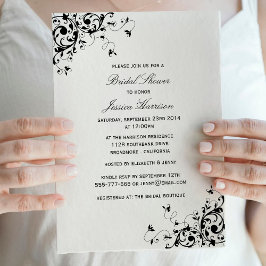 PLEASE JOIN US FOR A
Bridal Shower
TO HONOR
Jessica Harrison
SATURDAY, SEPTEMBER 23RD 2014
AT 12:00PM
AT THE HARRISON RESIDENCE
1128 SOUTHBANK DRIVE,
BROADMORE - CALIFORNIA
HOSTED BY ELIZABETH & JENNY
KINDLY RSVP BY SEPTEMBER 12TH
555-777-888 OR JENNY@EMAIL.COM
REGISTERED AT: THE BRIDAL BOUTIQUE